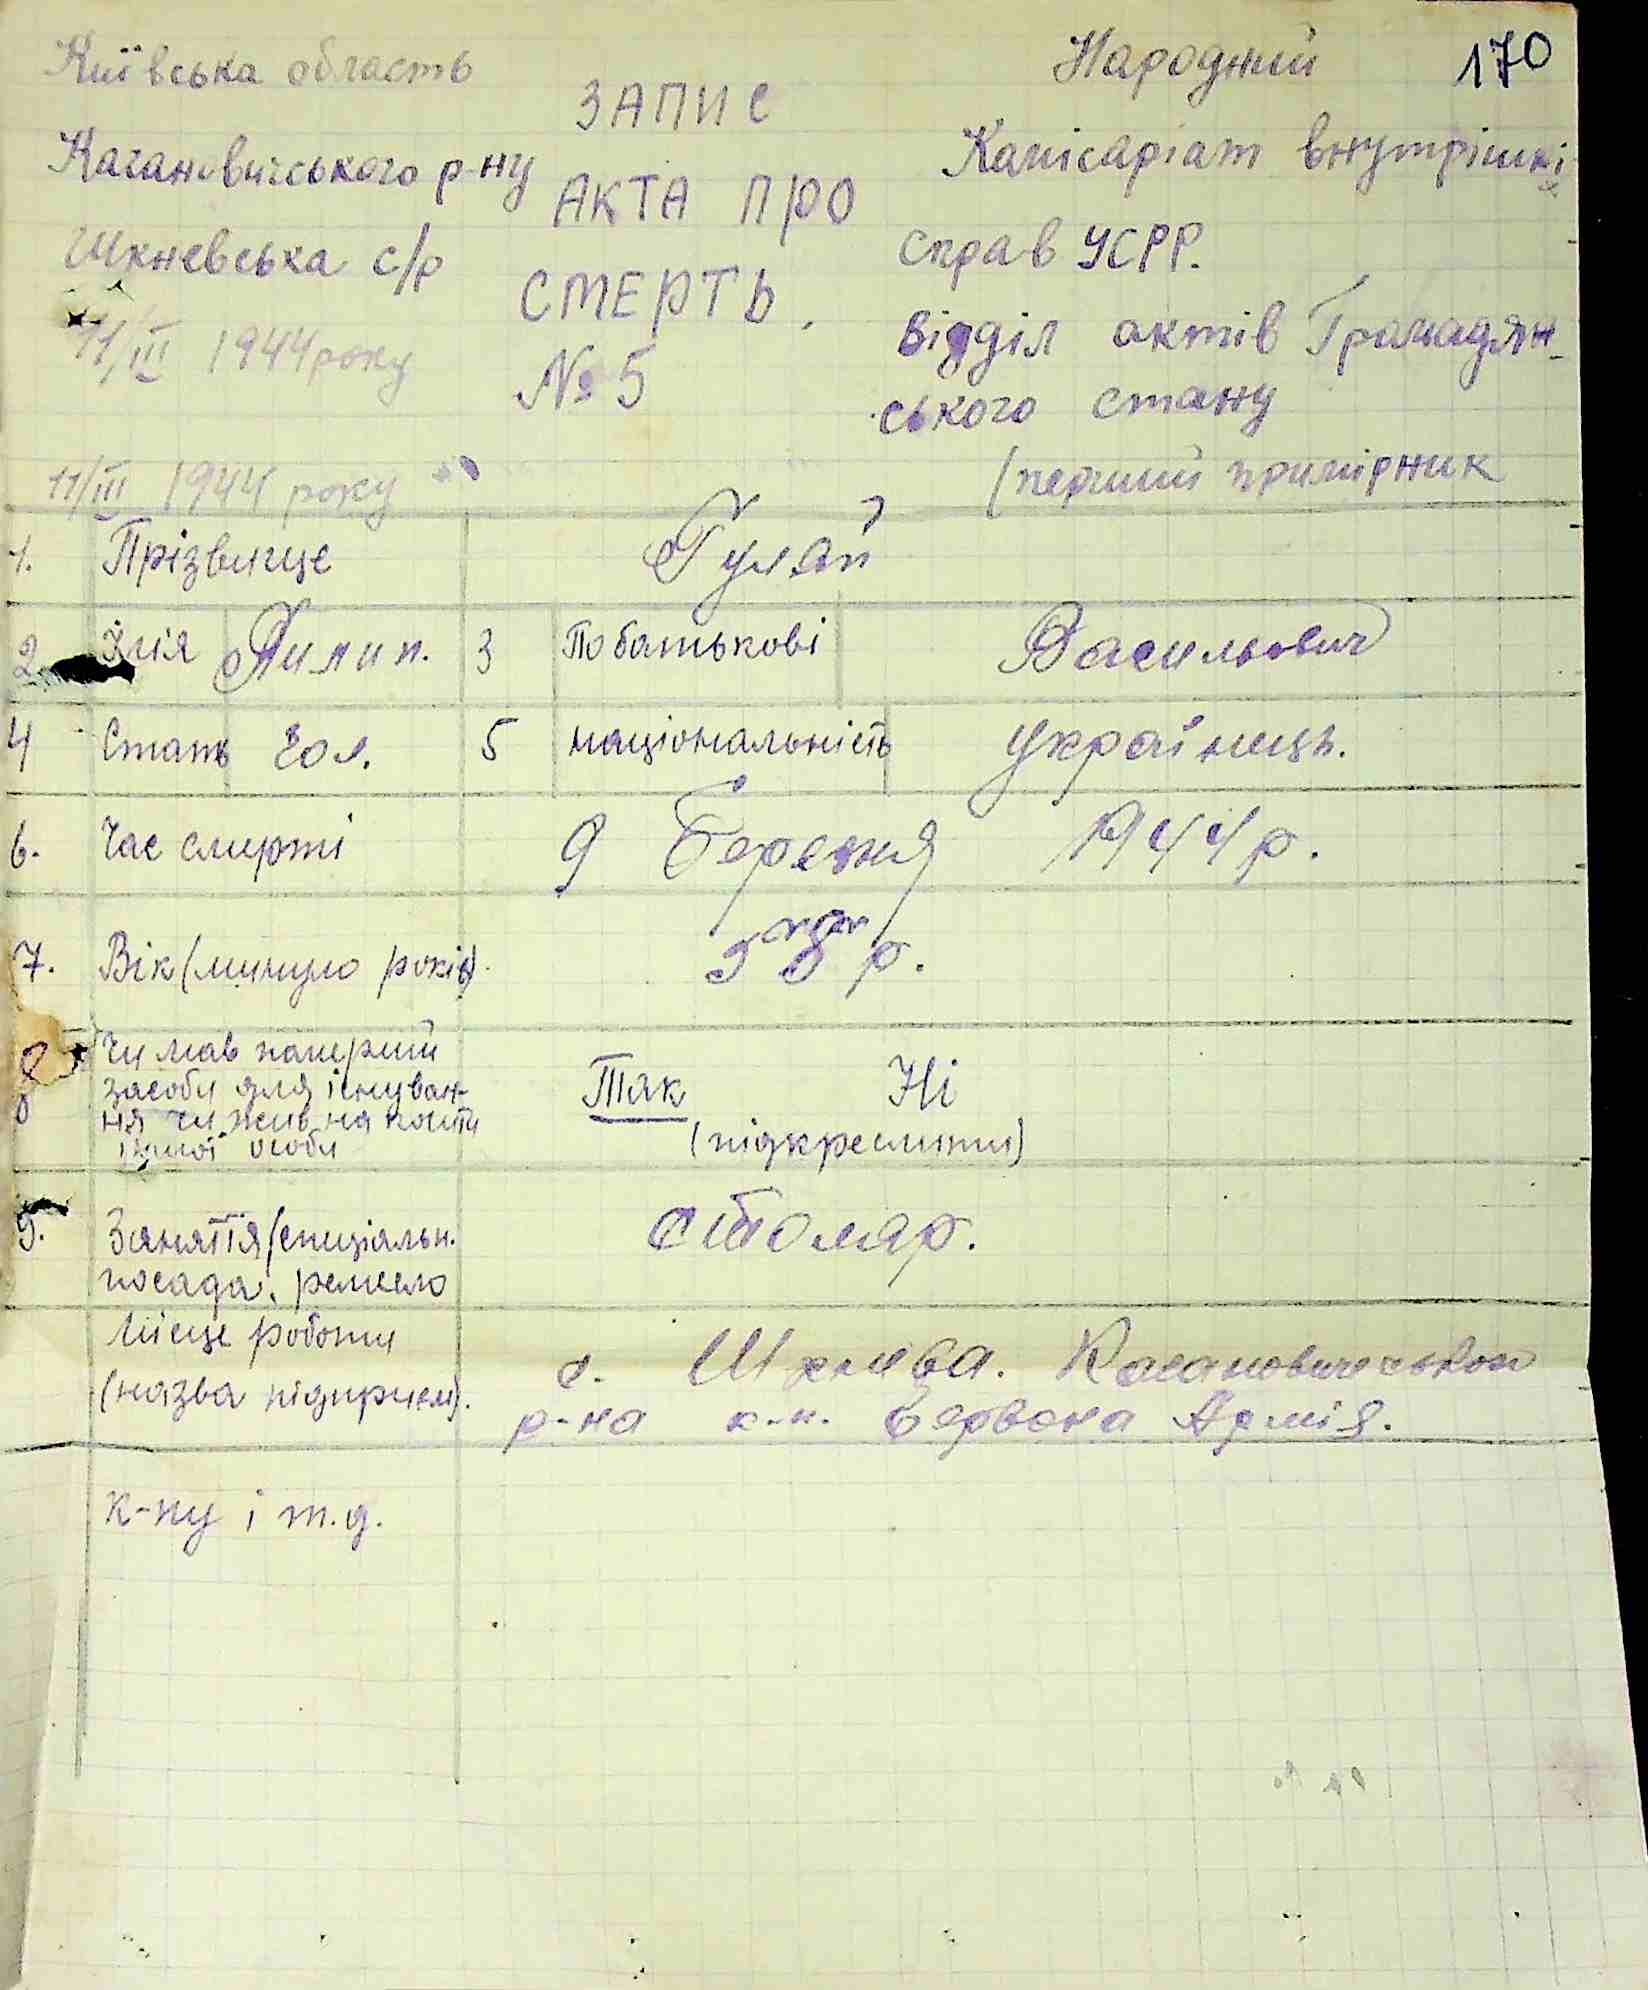 Київська область
Кагановичського р-ну
Шкневська с/р
11/III 1944 року
11/III 1944 року
ЗАПИС
АКТА ПРО
СМЕРТЬ.
№ 5
Народний 170
Камісаріат внутрішні
справ УСРР.
Відділ актів Громадян-
ського стану
(перший примірник
1. Прізвище Гулай
2. Імія Пилип. 3 Побатькові Васильович
4 Стать чол. 5 національність українець.
6. Час смерті 9 Березня 1944 р.
7. Вік (минуло років).
8 Чи мав померший
засоби для існуван-
ня чи жив на кошти
іншої особи
Так Ні
(підкреслити)
9. Заняття (специальн.
посада, ремесло
столяр.
Місце роботи
(назва підприєм).
с. Шкнева. Кагановичського
р-на к-п. Червона Армія.
к-пу і т.д.